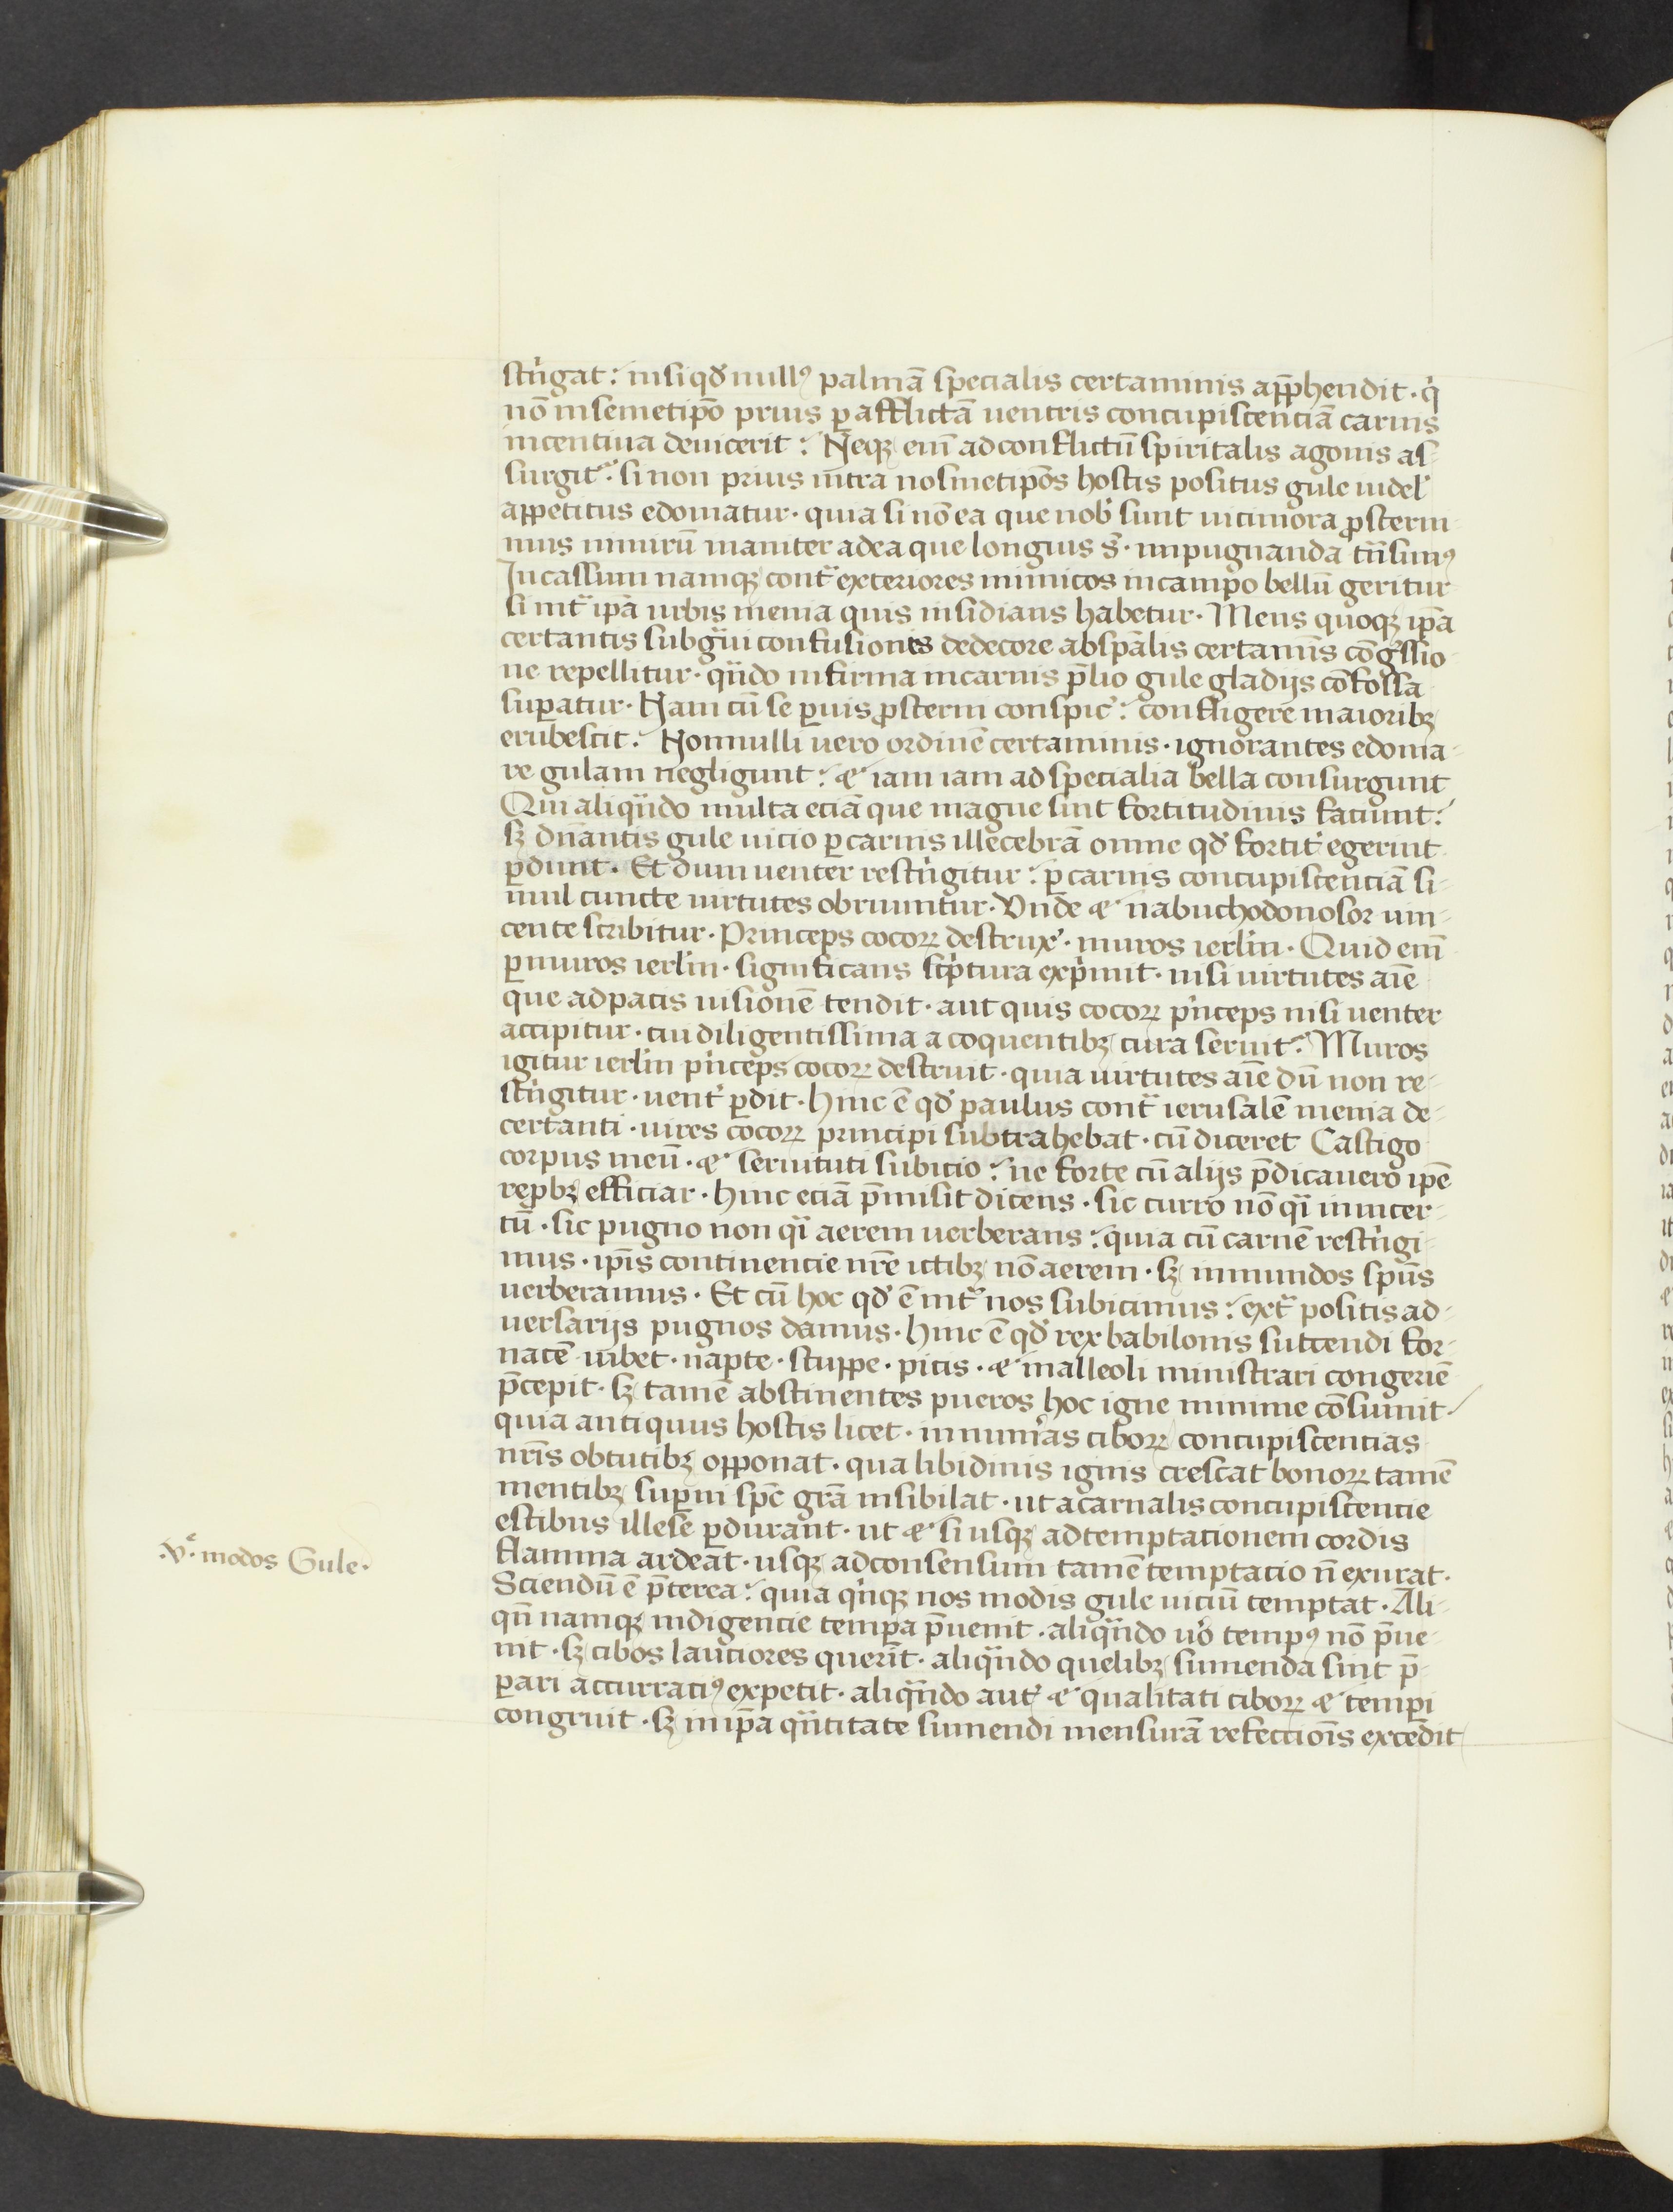 stͥngat: nisi qd̕ nullꝰ palmā specialis certaminis apͥphendit · qͥ
nō in semetip̄o prius ꝑ afflictā uentris concupiscenciā carnis
incentiua deuicerit: Neqꝫ eni᷑ ad conflictū spiritalis agonis as-
surgit᷑: si non prius intra nosmetip̄os hostis positus gule uidelꝫ
appetitus edomatur · quia si nō ea que nob̕ sunt uicinora ꝓsterni
mus nimirū inaniter ad ea que longius s̄t · impugnanda tn̄simꝰ
Incassum namqꝫ contᷓ exteriores inimicos in campo bellū geritur
si intᷓ ip̄a urbis menia quis insidians habetur · Mens quoqꝫ ip̄a
certantis sub gᷓui confusionis dedecore ab sp̄alis certamīs cōgͤssio
ne repellitur · qᷓndo infirma in carnis p̄lio gule gladijs cōfossa
suꝑatur · Nam cū se ꝑuis ꝓsterni conspic̕: confligere maioribꝫ
erubescit: Nonnulli uero ordinē certaminis · ignorantes edoma-
re gulam negligunt: & iam iam ad specialia bella consurgunt
Qui aliqᷓndo multa eciā que magne sint fortitudinis faciunt:
sꝫ dn̄antis gule uicio ꝑ carnis illecebrā omne qd̕ fortit̕ egerint
ꝑdunt · Et dum uenter restͥngitur: ꝑ carnis concupiscenciā si-
mul cuncte uirtutes obruuntur · Vnde & nabuchodonosor uin-
cente scribitur · Princeps cocoꝝ destrux̕ · muros ierlm̄ · Quid eni᷑
ꝑ muros ierlm̄ · significans scͥptura expͥmit · nisi uirtutes aīe
que ad pacis uisionē tendit · aut quis cocoꝝ pͥnceps nisi uenter
accipitur · cui diligentissima a coquentibꝫ cura seruit᷑: Muros
igitur ierlm̄ pͥnceps cocoꝝ destruit · quia uirtutes aīe dū non re-
stͥngitur · uent̕ ꝑdit · Hinc ē qd̕ paulus contᷓ ierusalē menia de-
certanti · uires cocoꝝ principi subtrahebat · cū diceret Castigo
corpus meū · & seruituti subicio: ne forte cū alijs p̄dicauero ip̄e
reꝓbꝫ efficiar · Hinc eciā p̄misit dicens · sic curro nō qͣi in incer-
tū · sic pugno non qͣi aerem uerberans: quia cū carnē restͥngi-
mus · ip̄is continencie nr̄e ictibꝫ nō aerem · sꝫ inmundos sp̄us
uerberamus · Et cū hoc qd̕ ē intᷓ nos subicimus: extᷓ positis ad-
uersarijs pugnos damus · Hinc ē qd̕ rex babilonis succendi for-
nacē iubet · napte · stuppe · picis · & malleoli ministrari congeriē
p̄cepit · sꝫ tamē abstinentes pueros hoc igne minime cōsumit ·
quia antiquus hostis licet · innum̕as ciboꝝ concupiscencias
nr̄is obtutibꝫ opponat · qua libidinis ignis crescat bonoꝝ tamē
mentibꝫ suꝑni sp̄c grā insibilat · ut a carnalis concupiscencie
estibus illese ꝑdurant · ut & si usqꝫ ad temptationem cordis
flamma ardeat · usqꝫ ad consensum tamē temptacio n̄ exurat ·
·Vͤ· modos Gule·
Sciendū ē p̄terea: quia qͥnqꝫ nos modis gule uiciū temptat · Ali-
qn̄ namqꝫ indigencie temꝑa p̄uenit · aliqᷓndo uo̕ tempꝰ nō p̄ue-
nit · sꝫ cibos lauciores querit · aliqᷓndo quelibꝫ sumenda sint p̄-
ꝑari accurraciꝰ expetit · aliqᷓndo aut᷑ & qualitati ciboꝝ & temꝑi
congruit · sꝫ in ip̄a qᷓntitate sumendi mensurā refeccioīs excedit